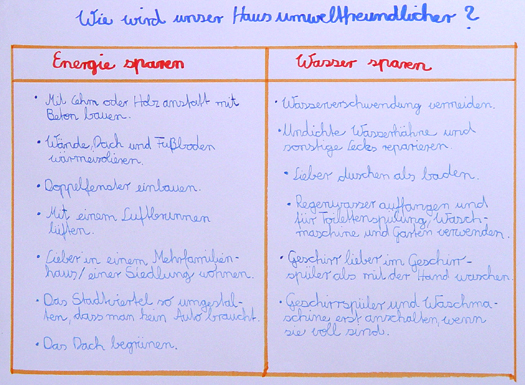 Wie wird unser Haus umweltfreundlicher?
Energie sparen
• Mit Lehm oder Holz anstatt mit
Beton bauen.
• Wände, Dach und Fußboden
wärmeisolieren.
• Doppelfenster einbauen.
• Mit einem Luftbrunnen
lüften.
• Lieber in einem Mehrfamilien-
haus/einer Siedlung wohnen.
• Das Stadtviertel so umgestal-
ten, dass man kein Auto braucht.
• Das Dach begrünen.
Wasser sparen
• Wasserverschwendung vermeiden.
• Undichte Wasserhähne und
sonstige Lecks reparieren.
• Lieber duschen als baden.
• Regenwasser auffangen und
für Toilettenspülung, Wasch-
maschine und Garten verwenden.
• Geschirr lieber im Geschirr-
spüler als mit der Hand waschen.
• Geschirrspüler und Waschma-
schine erst anschalten, wenn
sie voll sind.